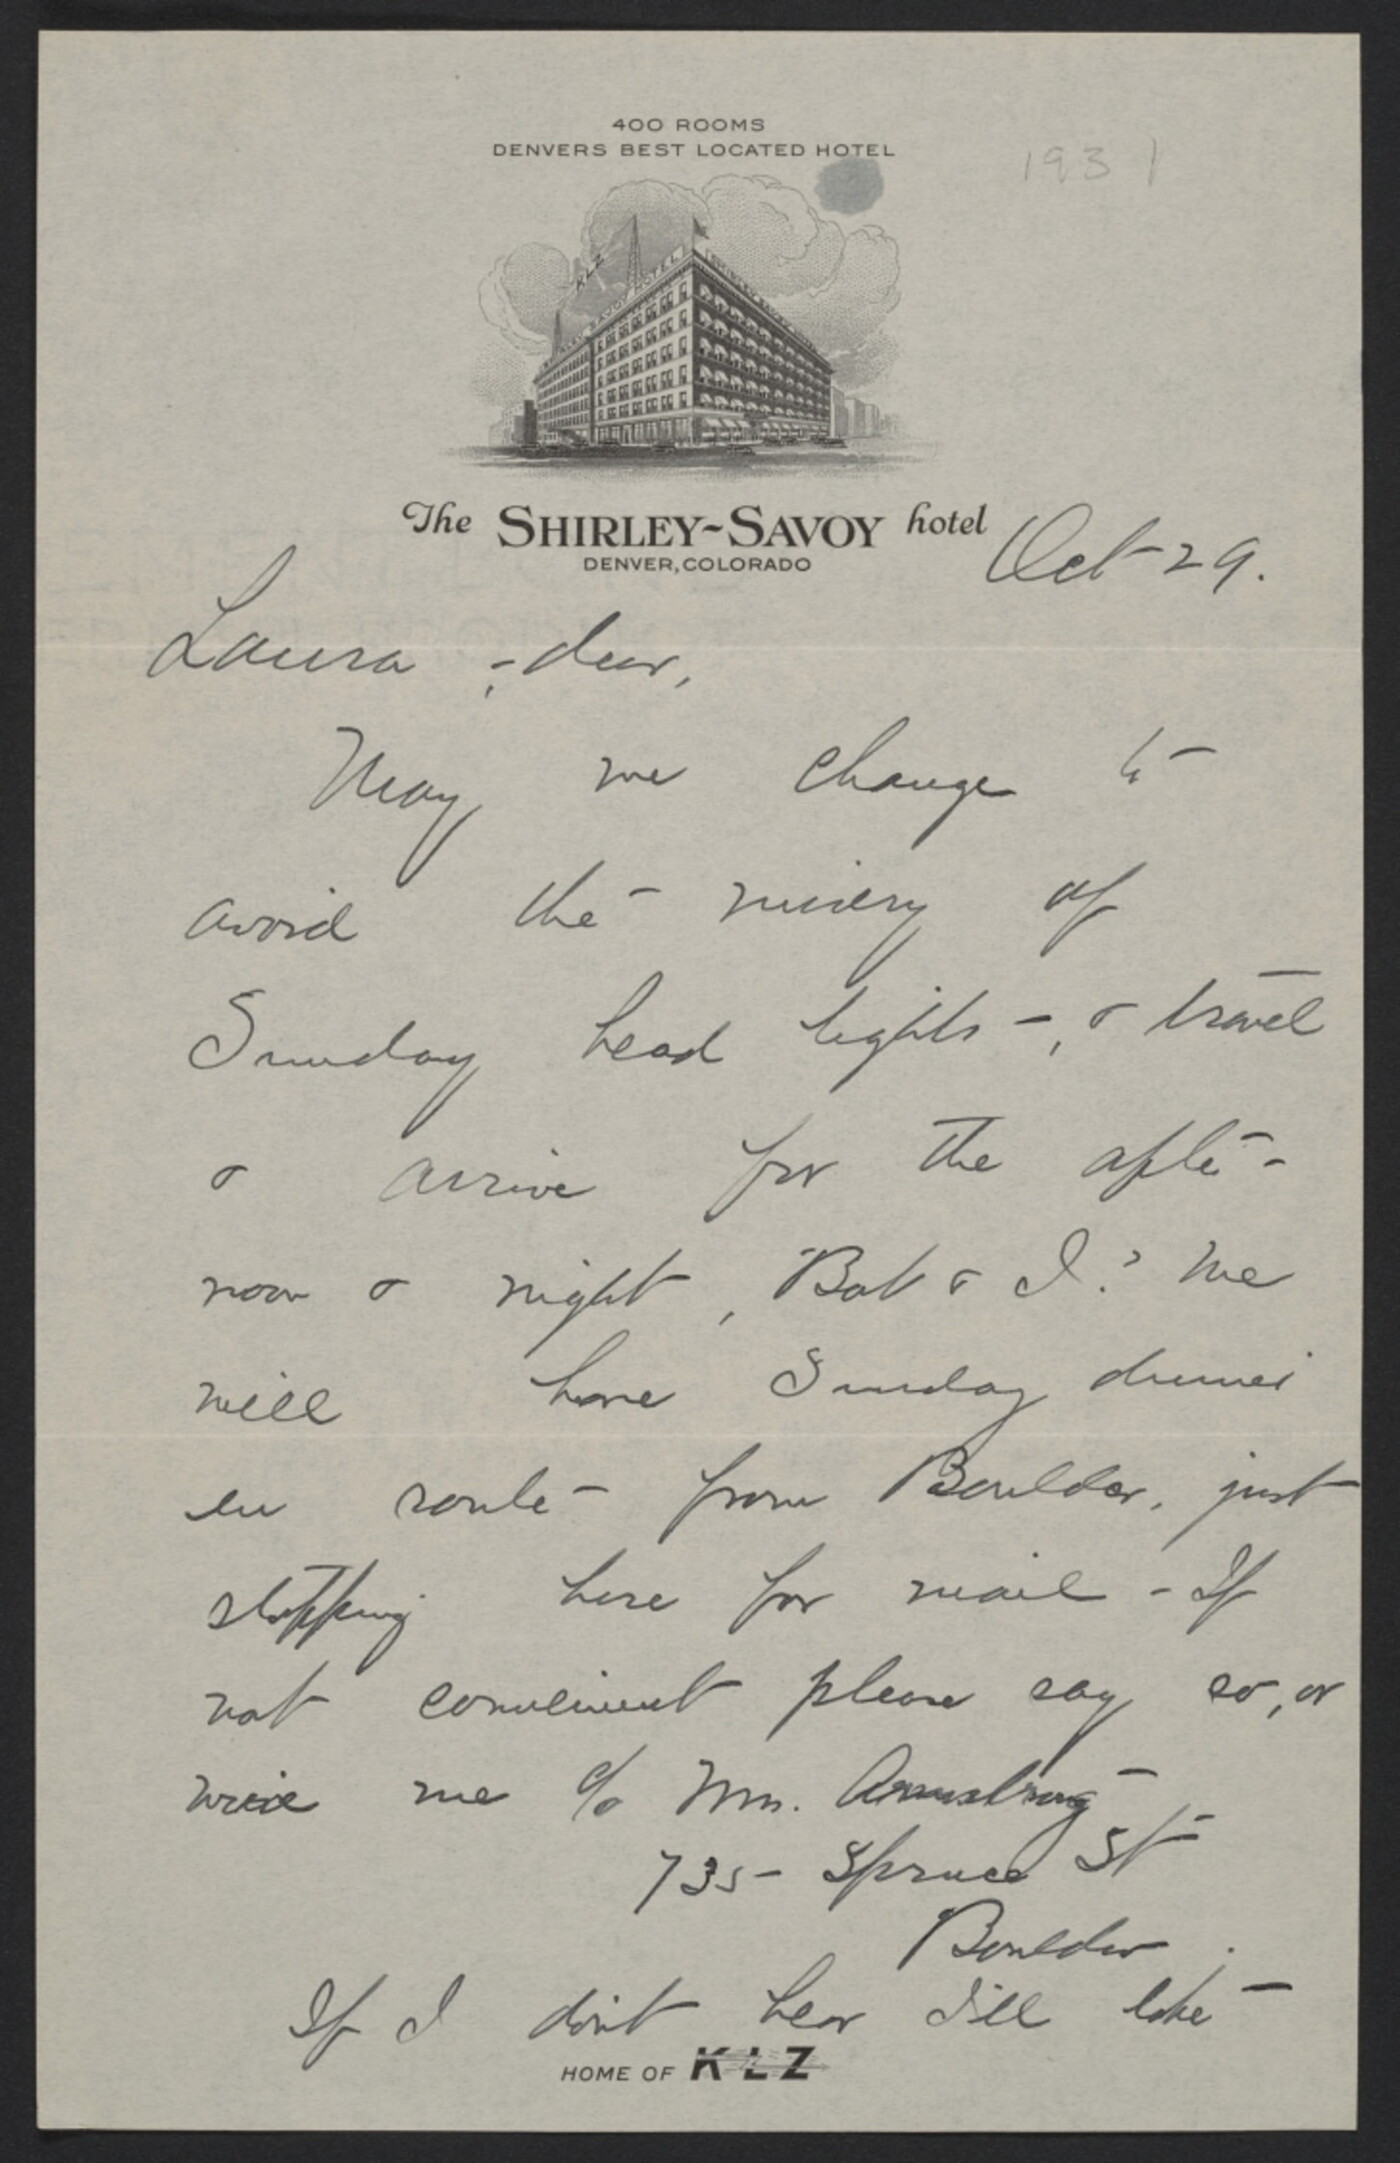 400 ROOMS
DENVERS BEST LOCATED HOTEL
1931
KLZ
SAVOY HOTEL
The SHIRLEY~SAVOY hotel
DENVER, COLORADO
Oct 29.
Laura, - dear,
May we change to
avoid the misery of
Sunday head lights -, & travel
& arrive for the after-
noon & night, Bob & I? We
will have Sunday dinner
en route from Boulder, just
stopping here for mail - If
not convenient please say so, or
wire me c/o Mrs. Armstrong
735 - Spruce St
Boulder.
If I don't hear I'll take
HOME OF KLZ